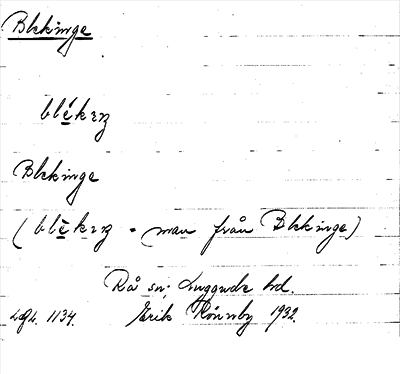 Blekinge
blékɪŋ
Blekinge
(blèkɪŋ = man från Blekinge)
Rå sn; Luggude hd.
LgL. 1134. Erik Rönnby 1932.